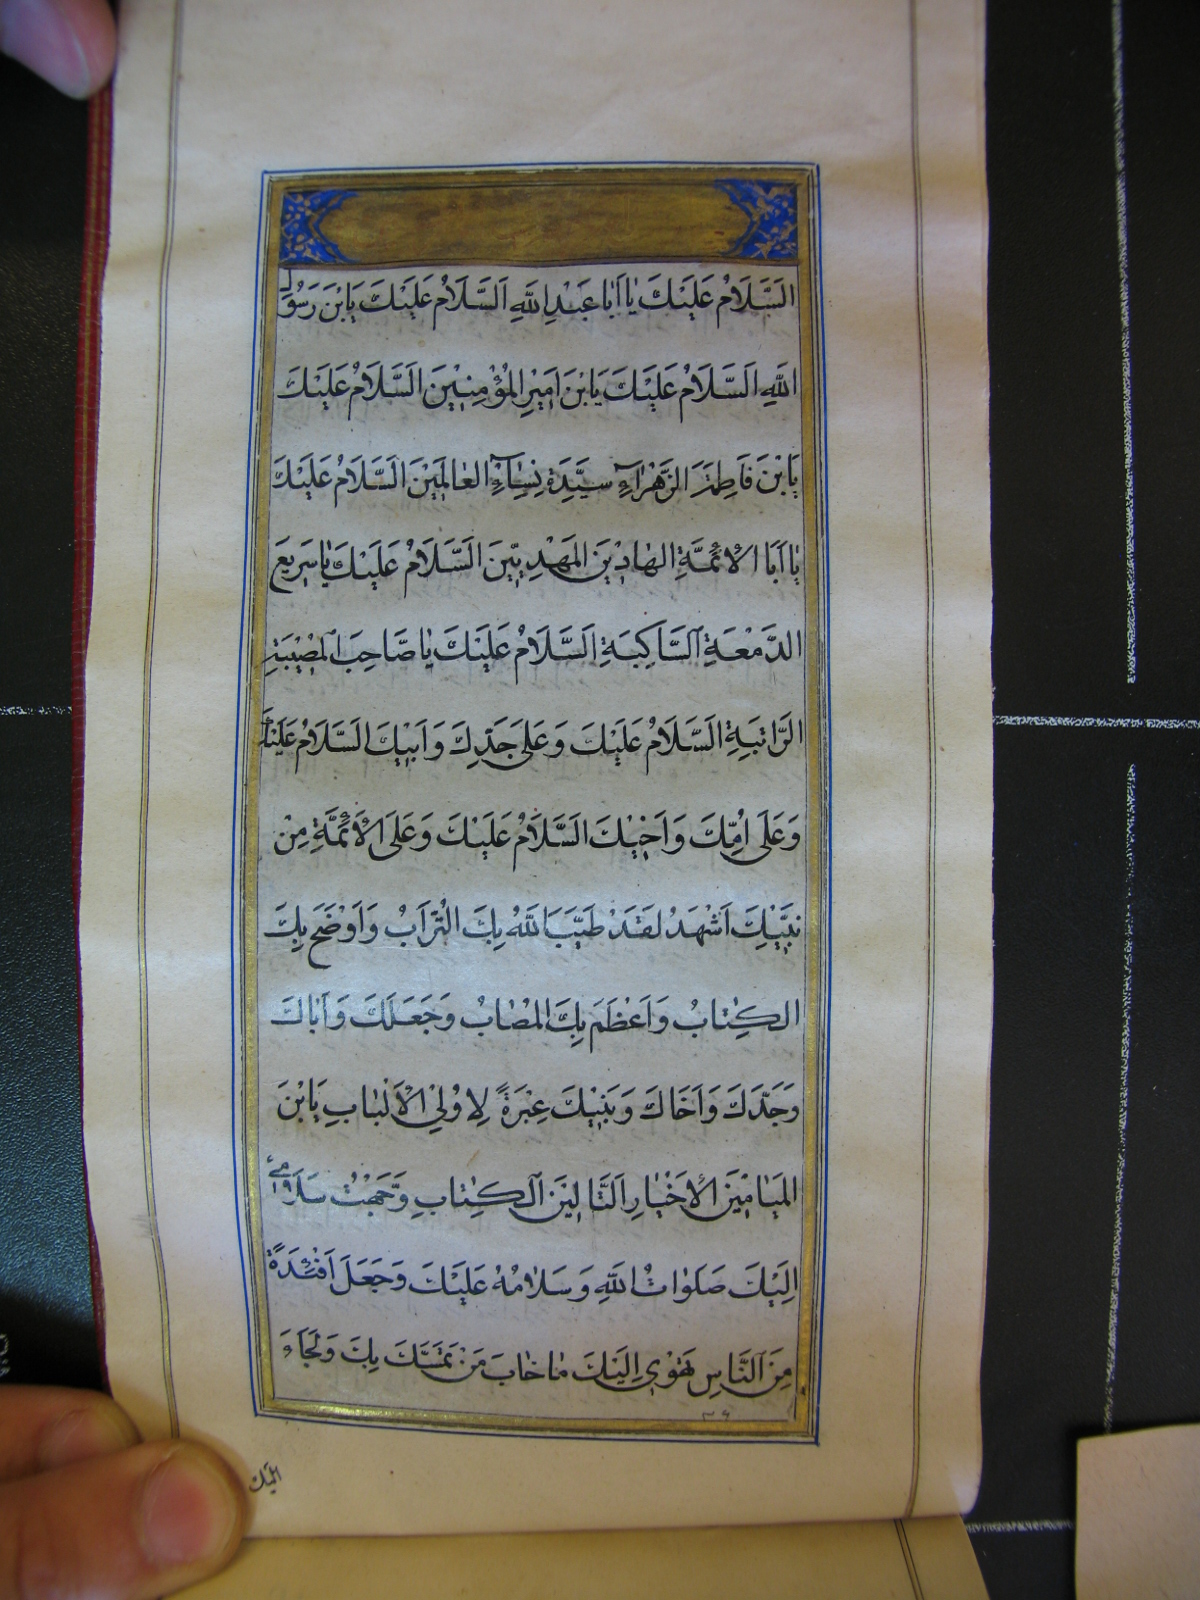 اَلسَّلَامُ عَلَيْكَ يٰا اَبٰا عَبْدِ اللّٰهِ اَلسَّلَامُ عَلَيْكَ يَابْنَ رَسُولِ
اللّٰهِ اَلسَّلَامُ عَلَيْكَ يَابْنَ اَمِيْرِ الْمُؤْمِنِيْنَ اَلسَّلَامُ عَلَيْكَ
يَابْنَ فَاطِمَةَ الزَّهْرٰاءِ سَيِّدَةِ نِسٰاءِ الْعٰالَمِيْنَ اَلسَّلَامُ عَلَيْكَ
يٰا اَبَا الْاَئِمَّةِ الْهٰادِيْنَ الْمَهْدِيّٖيْنَ اَلسَّلَامُ عَلَيْكَ يٰا سَرِيعَ
الدَّمْعَةِ السَّاكِبَةِ اَلسَّلَامُ عَلَيْكَ يٰا صَاحِبَ الْمُصِيْبَةِ
الرَّاتِبَةِ اَلسَّلَامُ عَلَيْكَ وَعَلٰى جَدِّكَ وَاَبِيْكَ اَلسَّلَامُ عَلَيْكَ
وَعَلٰى اُمِّكَ وَاَخِيْكَ اَلسَّلَامُ عَلَيْكَ وَعَلَى الْاَئِمَّةِ مِنْ
بَنِيْكَ اَشْهَدُ لَقَدْ طَيَّبَ اللّٰهُ بِكَ التُّرَابَ وَاَوْضَحَ بِكَ
الْكِتٰابَ وَاَعْظَمَ بِكَ الْمُصٰابَ وَجَعَلَكَ وَاَبٰاكَ
وَجَدَّكَ وَاَخَاكَ وَبَنِيْكَ عِبْرَةً لِاُولِي الْاَلْبٰابِ يَابْنَ
الْمَيٰامِيْنَ الْاَخْيٰارِ التَّالِيْنَ الْكِتٰابِ وَجَّهْتُ سَلَامِي
اِلَيْكَ صَلَوٰاتُ اللّٰهِ وَسَلَامُهُ عَلَيْكَ وَجَعَلَ اَفْئِدَةً
مِنَ النَّاسِ تَهْوِي اِلَيْكَ مٰا خٰابَ مَنْ تَمَسَّكَ بِكَ وَلَجَاءَ
اليك